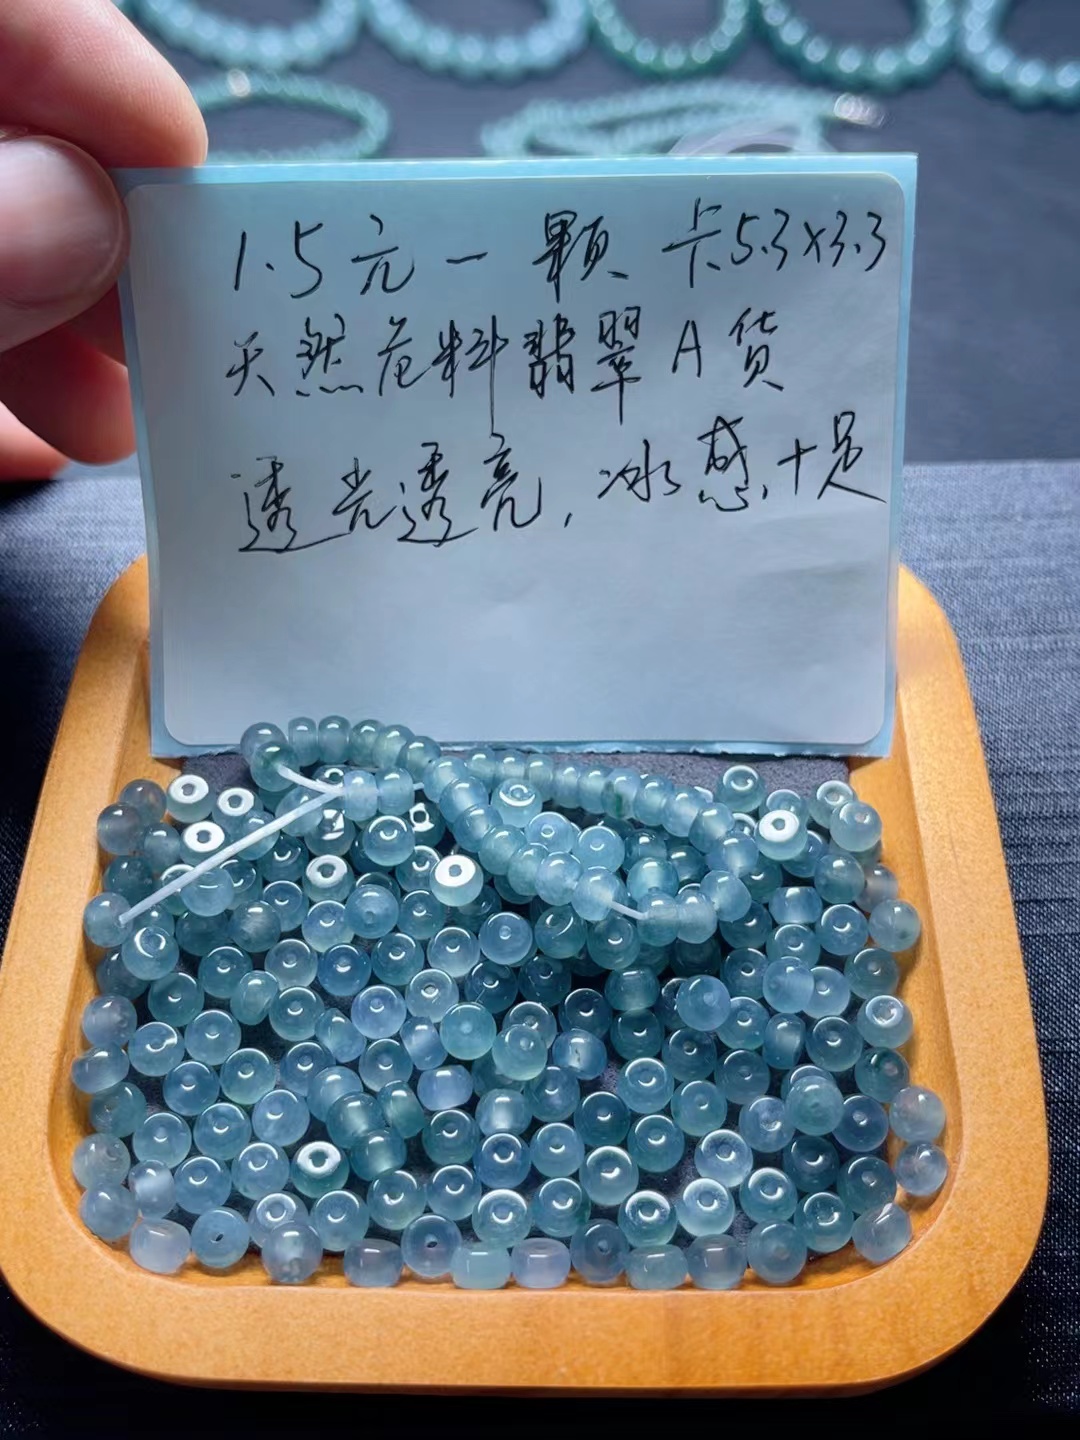 1.5元一颗 卡5.3x3.3
天然危料翡翠A货
透光透亮,冰感十足